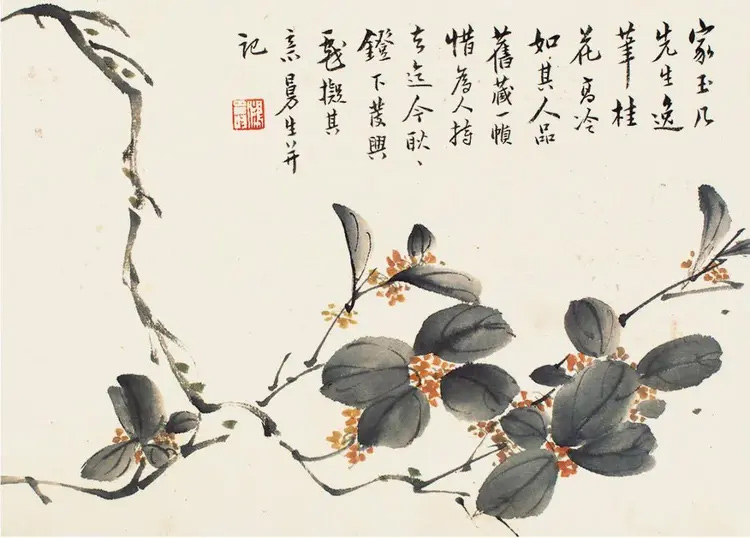 家玉几
先生逸
筆桂
花高冷
如其人品
舊藏一幀
惜為人持
去迄今耿〻
鐙下發興
戲擬其
意曼生并
記